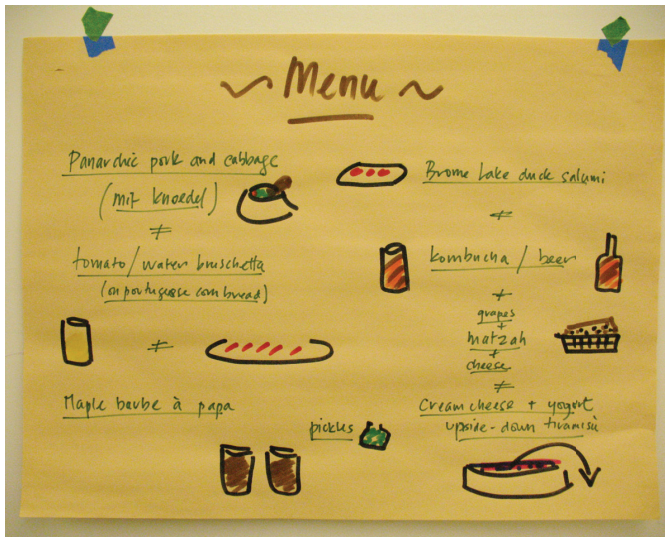 ~ Menu ~
Panarchic pork and cabbage
(mit knoedel)
≠
tomato/water bruschetta
(on portugese cornbread)
≠
Maple barbe à papa
pickles
Brome Lake duck salumi
≠
kombucha / beer
≠
grapes
+
matzah
+
cheese
≠
Cream cheese + yogurt
upside-down tiramisù